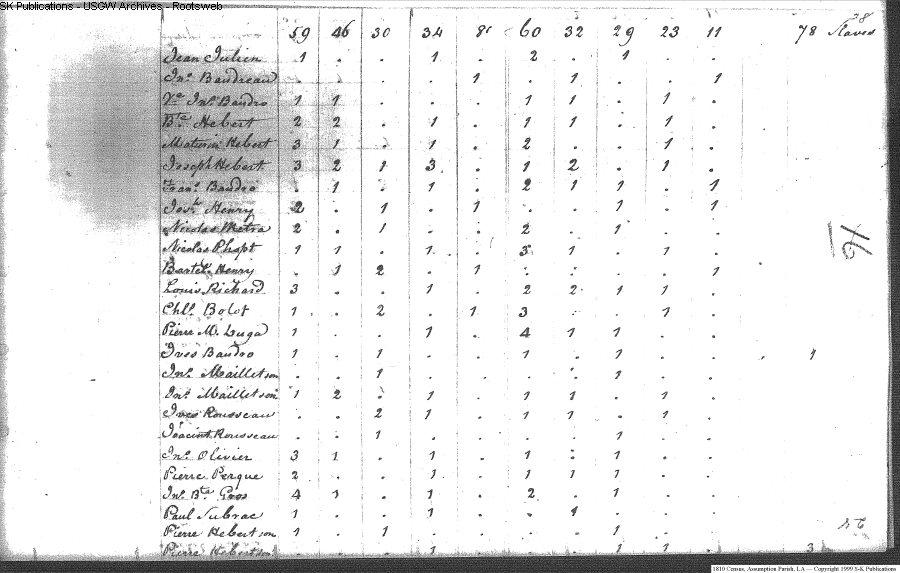 SK Publications - USGW Archives - Rootsweb
38
59 46 30 34 8 60 32 29 23 11 78 Slaves
Jean Julien 1 . . 1 . 2 . 1 . .
Jno. Baudreau . . . . 1 . 1 . . 1
Ve Jno. Baudro 1 1 . . . 1 1 . 1 .
Bte. Hebert 2 2 . 1 . 1 1 . 1 .
Maturin Hebert 3 1 . 1 . 2 . . 1 .
Joseph Hebert 3 2 1 3 . 1 2 . 1 .
Frans. Baudro . 1 . 1 . 2 1 1 . 1
Henry 2 . 1 . 1 . . 1 . 1
Nicolas Metra 2 . 1 . . 2 . 1 . .
Nicolas 1 1 . 1 . 3 1 . 1 .
Bartel. Henry . 1 2 . 1 . . . . 1
Louis Richard 3 . . 1 . 2 2 1 1 .
Chls. Bolot 1 . 2 . 1 3 . . 1 .
Pierre M. Luga 1 . . 1 . 4 1 1 . .
Ives Baudro 1 . 1 . . 1 . 1 . . 1
Jno. Maillet son . . 1 . . . . 1 . .
Jno. Maillet son 1 2 . 1 . 1 1 . 1 .
Ives Rousseau . . 2 1 . 1 1 . 1 .
Joacint Rousseau . . 1 . . . . 1 . .
Jno. Olivier 3 1 . 1 . 1 . 1 . .
Pierre Perque 2 . . 1 . 1 1 1 . .
Jno. Bte. Gros 4 1 . 1 . 2 . 1 . .
Paul 1 . . 1 . . 1 . . .
Pierre Hebert son 1 . 1 . . . . 1 . .
Pierre Hebert son . . . 1 . . . 1 1 . 3
1810 Census, Assumption Parish, LA — Copyright 1999 S-K Publications